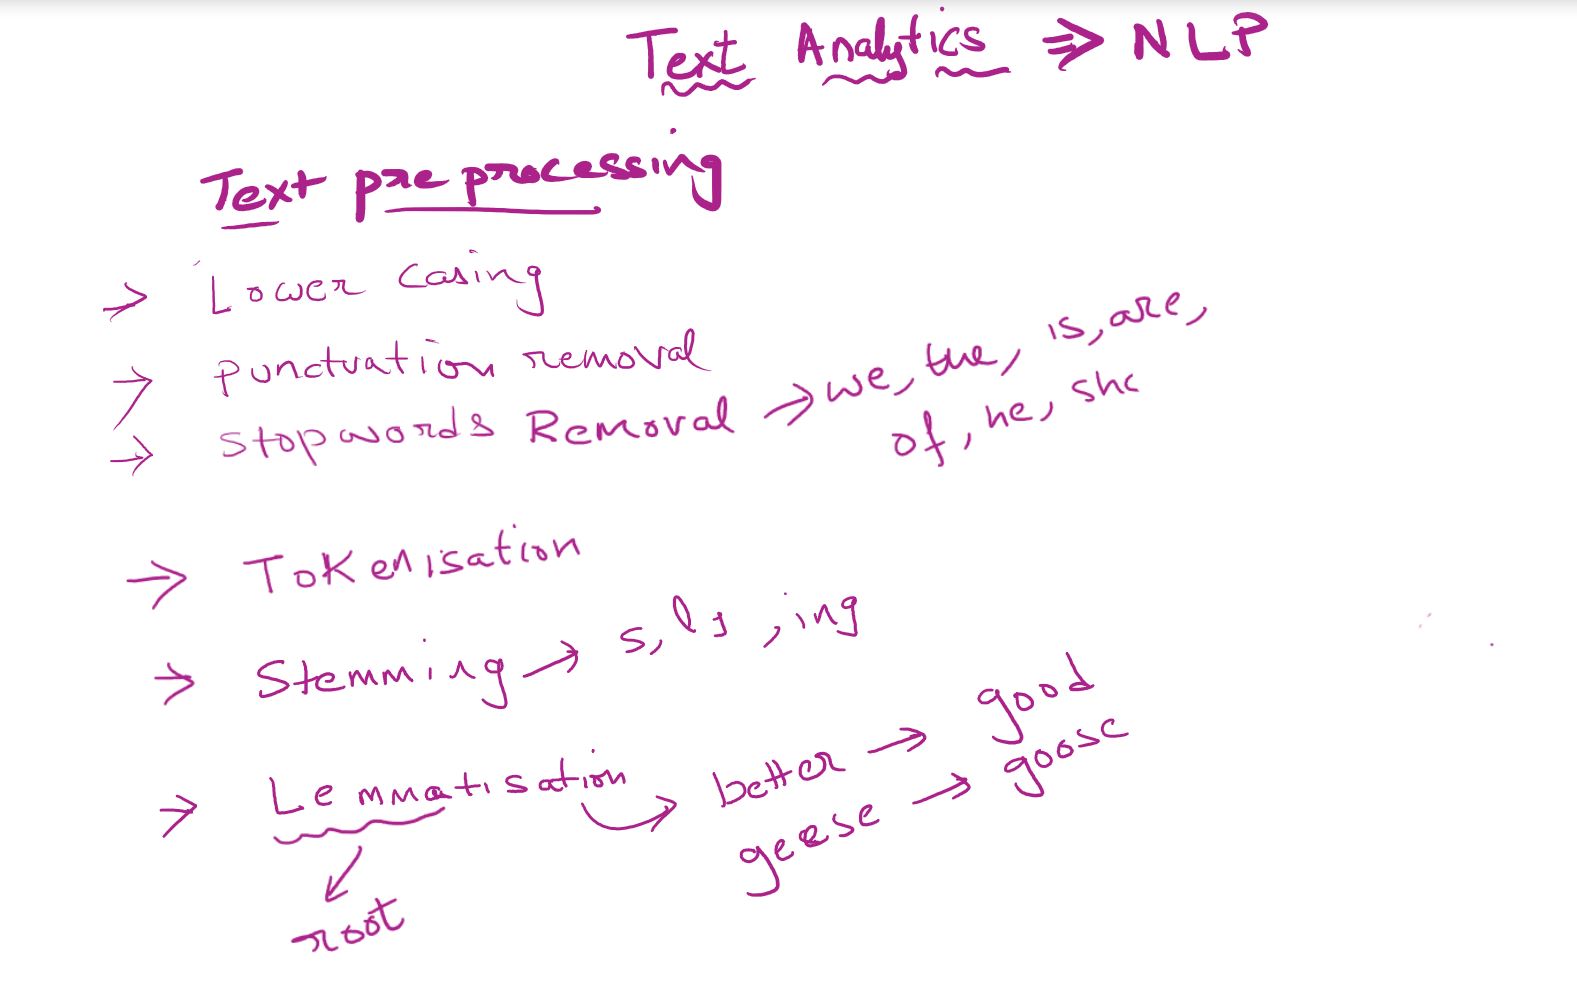 Text Analytics ⇒ NLP
Text preprocessing
→ Lower casing
→ punctuation removal
→ stopwords Removal → we, the, is, are,
of, he, she
→ Tokenisation
→ Stemming → s, ing
→ Lemmatisation → better → good
geese → goose
root